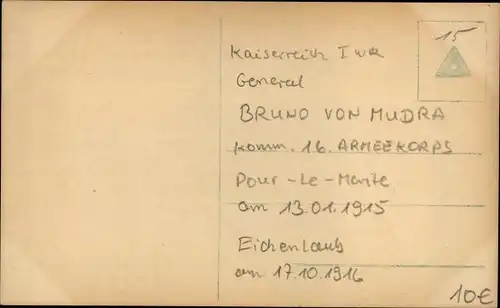 15
Kaiserreich I WK
General
BRUNO VON MUDRA
Komm. 16. ARMEEKORPS
Pour-Le-Merite
am 13.01.1915
Eichenlaub
am 17.10.1916
10€